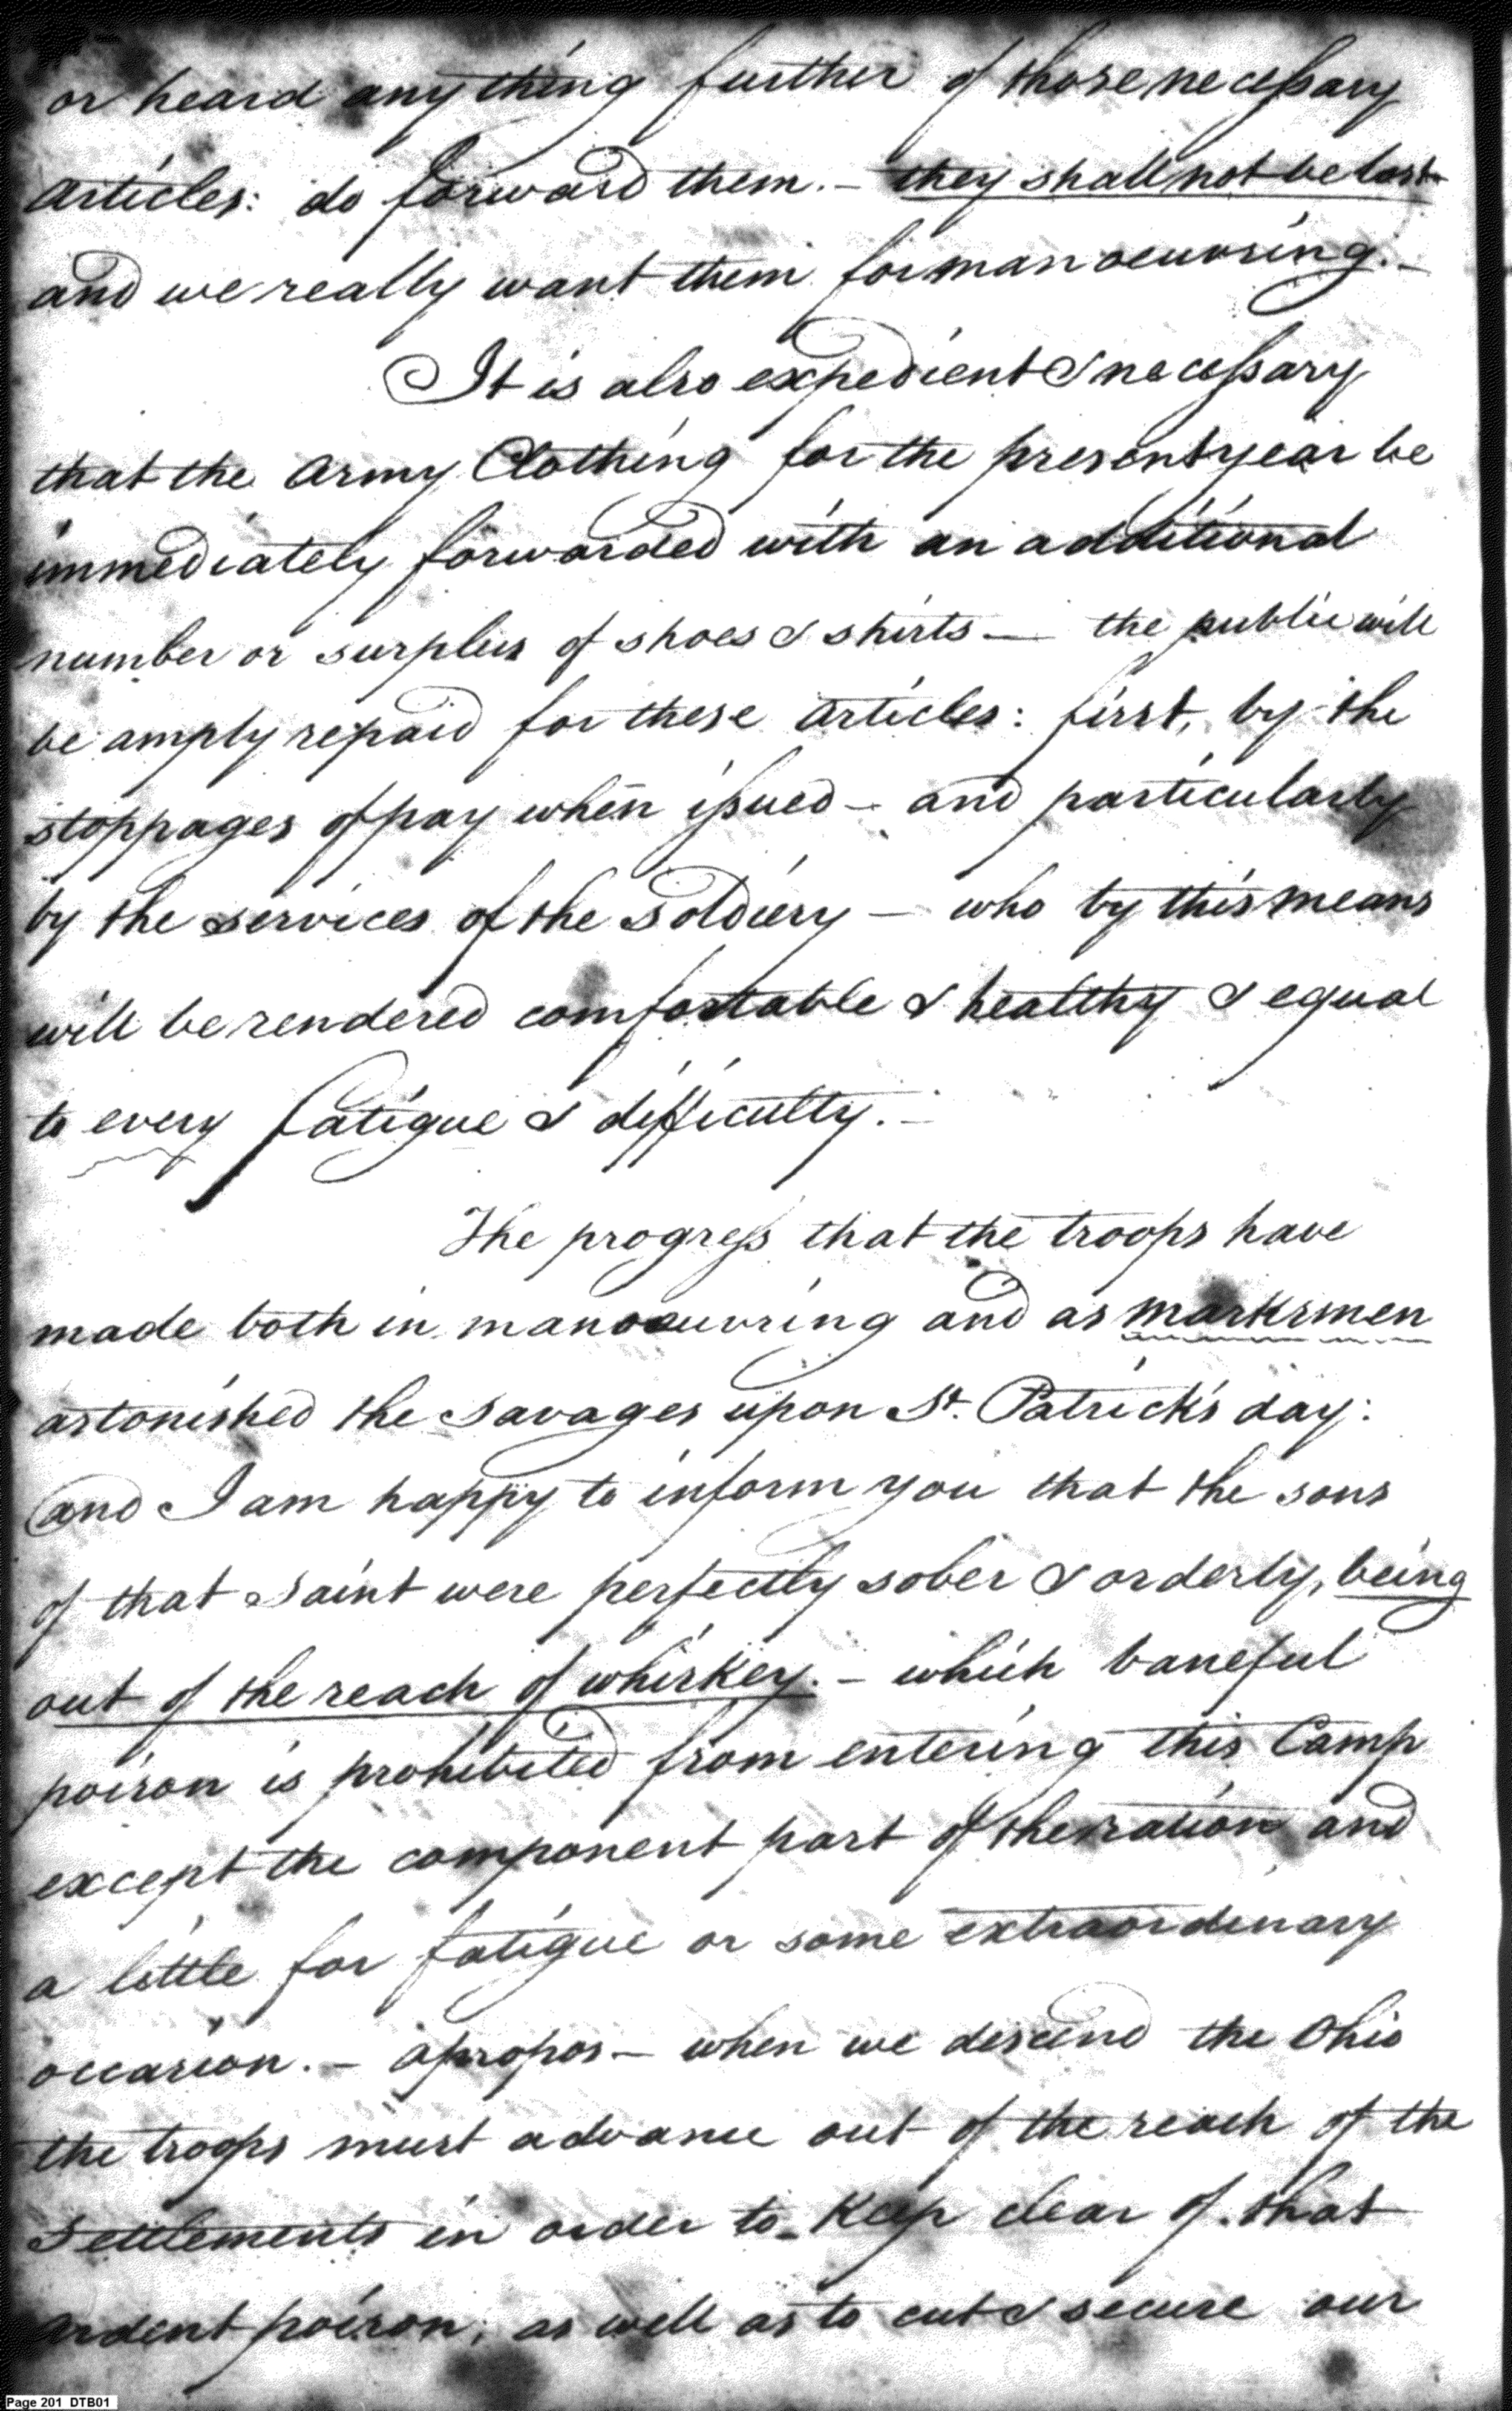 or heard any thing further of those necessary
articles: do forward them. – they shall not be lost
and we really want them for manoeuvring. –
It is also expedient & necessary
that the Army Clothing for the present year be
immediately forwarded with an additional
number or surplus of shoes & shirts – the public will
be amply repaid for these articles: first, by the
stoppages of pay when issued – and particularly
by the services of the soldiery – who by this means
will be rendered comfortable & healthy & equal
to every fatigue & difficulty. –
The progress that the troops have
made both in manoeuvring and as marksmen
astonished the savages upon St. Patrick's day:
and I am happy to inform you that the sons
of that Saint were perfectly sober & orderly, being
out of the reach of whiskey. – which baneful
poison is prohibited from entering this Camp
except the component part of the ration and
a little for fatigue or some extraordinary
occasion. – apropos – when we descend the Ohio
the troops must advance out of the reach of the
Settlements in order to keep clear of that
ardent poison; as well as to cut & secure our
Page 201 DTB01